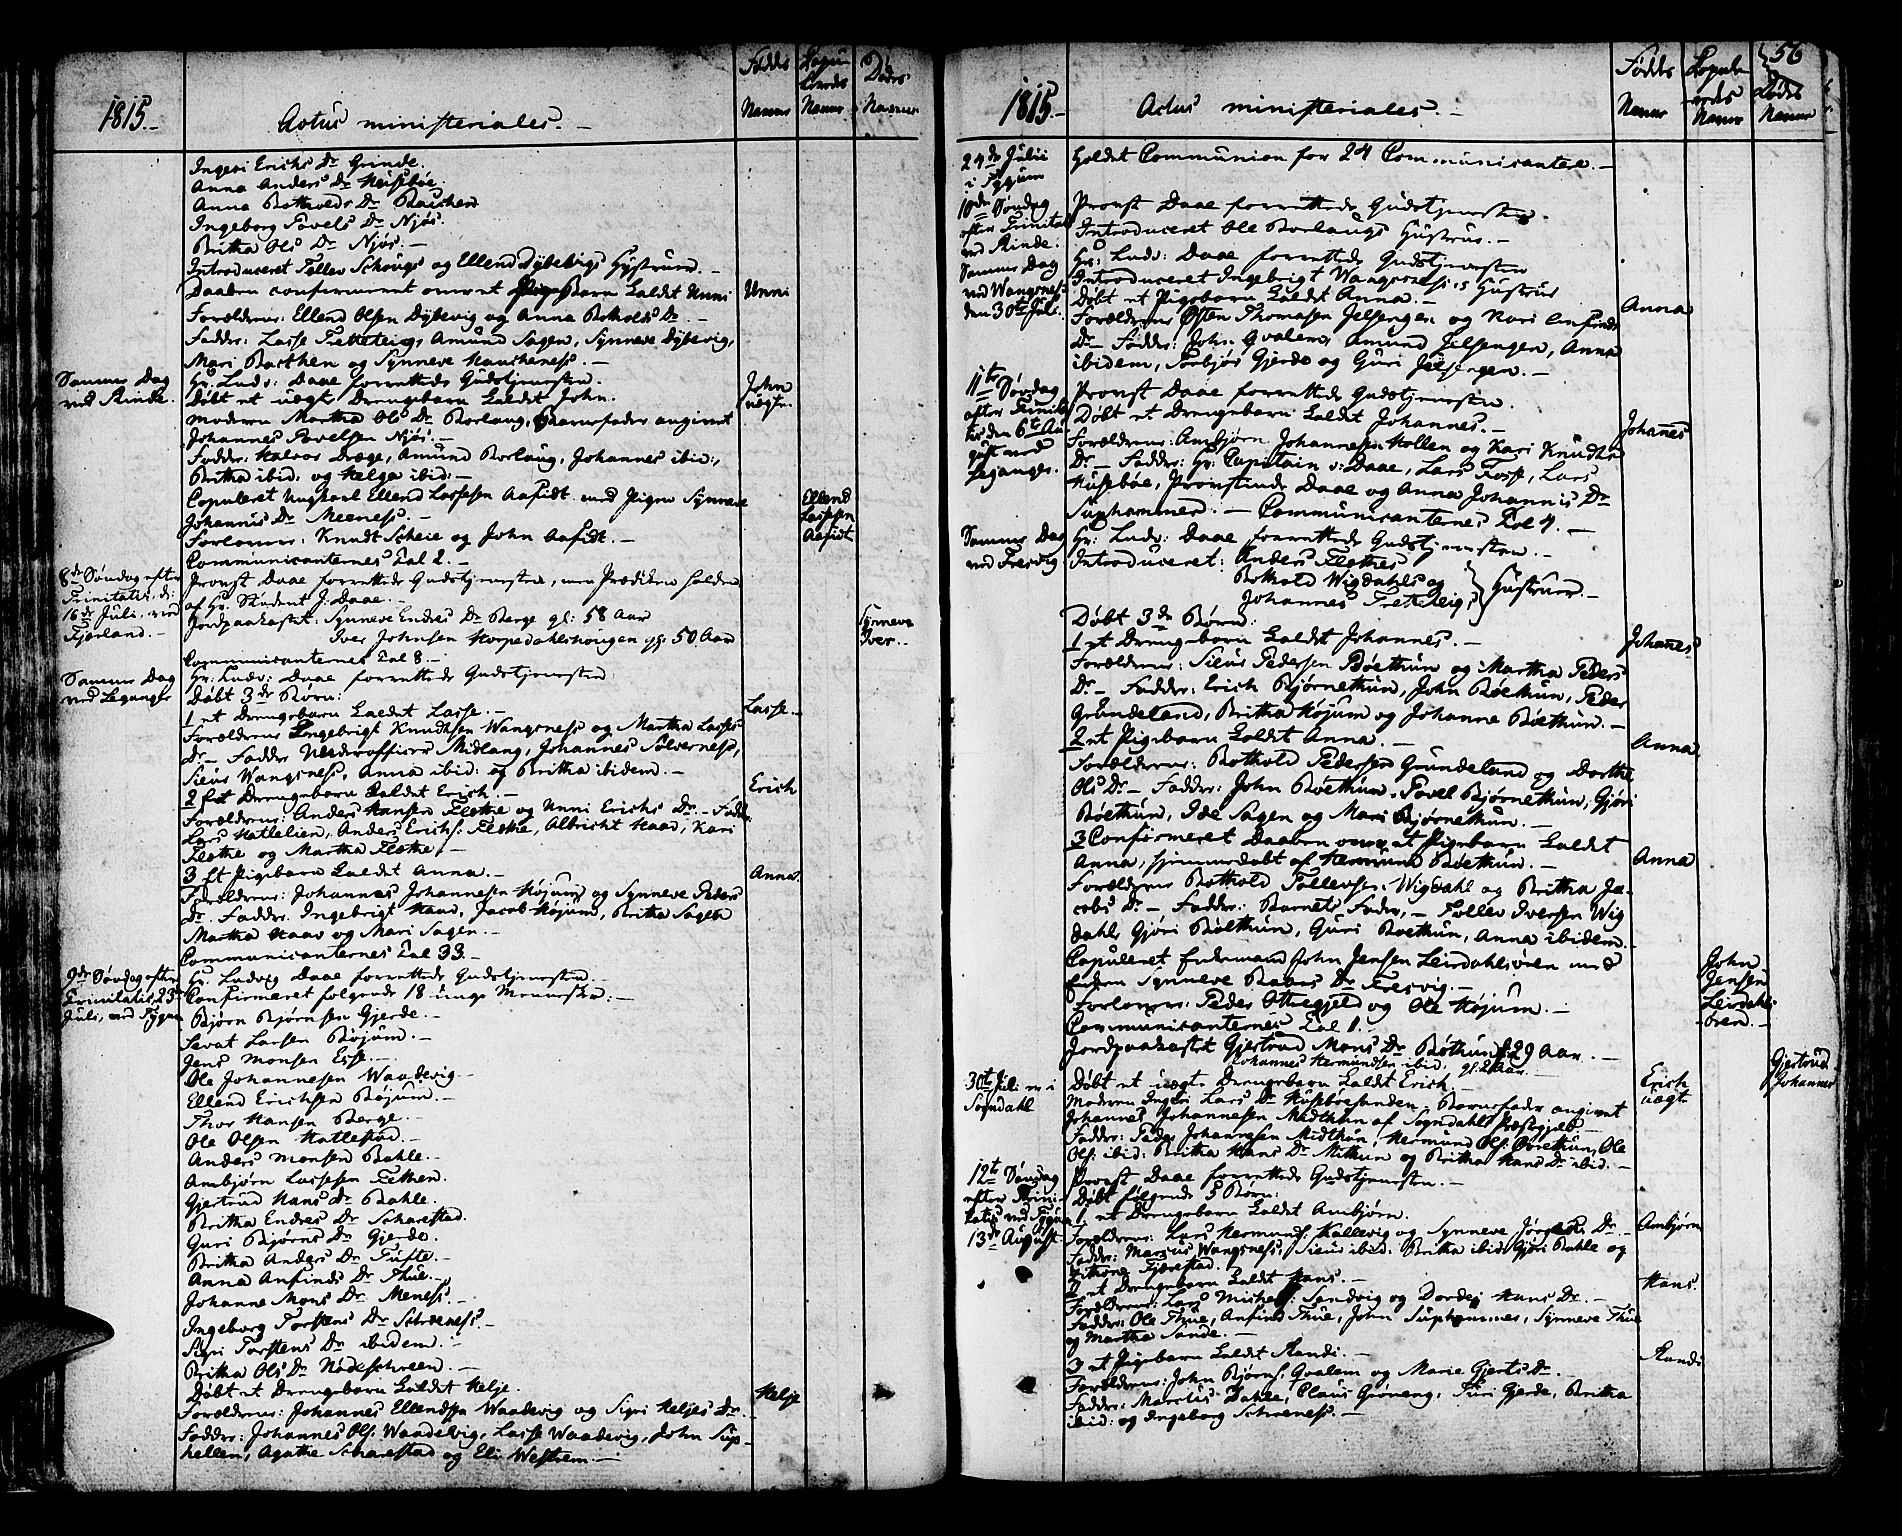 1815.
Actus ministeriales.
Fødde Navne
Copulerede Navne
Døde Navne
Ingeri Erichs Dr Grinde.
Anna Anders Dr Husebøe.
Anna Botholds Dr
Ingeborg Povels Dr Njøs.
Britha Ols Dr Njøs.
Introduceret Tollev Schougs og Ellend Dybevigs Hystruer.
Daaben confirmeret over et Pigebarn kaldet Unni
Unni
Forældrene: Ellend Olsen Dybevig og Anna Botholds Dr.
Faddr: Lasse Fretteteig, Amund Sagen, Synneve Dybevig,
Mari Barthen og Synneve
Samme Dag
ved Rinde.
Hr. Ludv: Daae forrettede Gudstjenesten.
Døbt et uægt Drengebarn kaldet John.
John uægte.
Moderen Martha Ols Dr Borlaug, Barnefader angivet
Johannes Povelsen Njøs.
Faddr: Halvor Drege, Amund Borlaug, Johannes ibid:,
Britha ibid. og Helga ibid.
Copuleret Ungkarl Ellend Lassesen Aafedt med Pigen Synneve
Johannis Dr Meeness.
Ellend Lassesen Aafedt
Forlovere: Knudt Scheie og John Aafedt.
Communicanternes Tal 2.
8de Søndag efter
Trinitatis, d:
16de Juli, ved
Fjærland.
Provst Daae forrettede Gudstjenesten, men Prædiken holden
af Hr. Student J. Daae.
Jordpaakastet: Synneve Endres Dr Berge gl: 58 Aar
Iver Johnsen gl. 50 Aar
Synneve
Iver.
Communicanternes Tal 8.
Samme Dag
ved Leganger
Hr: Ludv: Daae forrettede Gudstjenesten
Døbt 3de Børn:
1 et Drengebarn kaldet Lasse.
Lasse.
Forældrene Engebrigt Knudtsen Wangsness og Martha Lasses
Dr. Faddr Underofficer Midlang, Johannes
Siur Wangsness, Anna ibid: og Britha ibidem.
2 et Drengebarn kaldet Erich.
Erich
Forældrene: Anders Hansen Flethe og Unni Erichs Dr. Faddr:
Lars Hatlelien, Anders Erichs: Flethe, Albricht Haad, Kari
Flethe og Martha Flethe.
3 et Pigebarn kaldet Anna.
Anna.
Forældrene: Johannes Johannesen Højum og Synneve Peders
Dr. Faddr. Ingebrigt Haad, Jacob Højum, Britha Sagen
Martha Haad og Mari Sagen.
Communicanternes Tal 33.
9de Søndag efter
Trinitatis, 23de
Juli, ved Tygum
Hr. Ludvig Daae forrettede Gudstjenesten.
Confirmeret følgende 18 unge Mennesker:
Bjørn Bjørnsen Gjerde.
Sevat Larsen Bøjum.
Jens Monsen Esse.
Ole Johannesen Waadevig.
Ellend Erichsen Bøjum.
Thor Hansen Berge.
Ole Olsen Hatlestad.
Anders Monsen Bahle.
Ambjørn Lassesen Fethen.
Gjertrud Hans Dr Bahle.
Britha Endres Dr Scharestad.
Guri Bjørns Dr Gjerde.
Britha Anders Dr Tufte.
Anna Anfinds Dr Thue.
Johanne Mons Dr Meness.
Ingeborg Torstens Dr Schreness.
Sigri Torstens Dr ibidem.
Britha Ols Dr Nødeschreen.
Døbt et Drengebarn kaldet Helje.
Helje
Forældrene: Johannes Ellendsen Waadevig og Sigri Heljes Dr.
Faddr: Johannes Ols: Waadevig, Lasse Waadevig, John Sup-
hellen, Agathe Scharestad og Eli Westrem.
56
1815.
Actus ministeriales.
Fødde Navne
Copulerede Navne
Døde Navne
24de Julii
i Tygum
Holdet Communion for 24 Communicantere.
10de Søndag
efter Trinitat:
ved Rinde:
Provst Daae forrettede Gudstjenesten.
Introduceret Ole Borlaugs Hustrue.
Samme Dag
ved Wangsness
den 30te Juli.
Hr: Ludv: Daae forrettede Gudstjenesten
Introduceret Ingebrigt Wangsness's Hustrue
Døbt et Pigebarn kaldet Anna.
Anna
Forældrene Østen Thomasen Jelsengen og Kari Anfinds
Dr. Faddr: John Gvalen, Amund Jelsengen, Anna
ibidem, Torbjør Gjerde og Guri Jelsengen.
11te Søndag
efter Trinita-
tis den 6te Au-
gust ved
Leganger.
Provst Daae forrettede Gudstjenesten.
Døbt et Drengebarn kaldet Johannes.
Johanes
Forældrene: Ambjørn Johannesen Hollen og Kari Knudts
Dr. Faddr: Hr. Capitain v: Daae, Lars Fosse, Lars
Husebøe, Provstinde Daae og Anna Johannis Dr
Suphammer. Communicanternes Tal 4.
Samme Dag
ved Fresvig
Hr: Ludv: Daae forrettede Gudstjenesten.
Introduceret: Anders Flethes
Bothold Wigdahls og
Johannes Fretteteigs
Hustruer.
Døbt 3de Børn:
1 et Drengebarn kaldet Johannes.
Johanes
Forældrene: Siur Pedersen Bøethun og Martha Peders
Dr. Faddr: Erich Bjørnethun, John Bøethun, Peder
Grundeland, Britha Højum og Johanne Bøethun.
2 et Pigebarn kaldet Anna.
Anna
Forældrene: Bothold Pedersen Grundeland og Dorthe
Ols Dr. Faddr: John Bøethun, Povel Bjørnethun, Gjøri
Bøethun, Ide Sagen og Mari Bjørnethun.
3 Confirmeret Daaben over et Pigebarn kaldet
Anna, hjemmedøbt af Hermund Bøethun.
Anna
Forældrene Bothold Tollevsen Wigdahl og Britha Ja-
cobs Dr. Faddr: Barnets Fader, Tollev Iversen Wig
dahl, Gjøri Bøethun, Guri Bøethun, Anna ibidem.
Copuleret Enkemand John Jensen Leirdahlsøren med
Enken Synneve Dr Fresvig.
John Jensen Leirdahls-øren.
Forlovere: Peder Ottegjeld og Ole Højum.
Communicanternes Tal 1.
Jordpaakastet Gjertrud Mons Dr Bøthun gl. 29 Aar.
Johannes Hermundsen ibid. gl. 2 Aar.
Gjertrud
Johannes
30te Juli er i
Sogndahl
Døbt et uægte Drengebarn kaldet Erich.
Erich uægt.
Moderen Ingeri Lars Dr Husebøesanden, Barnefader angivet
Johannes Johannesen Midthun af Sogndahls Præstegjeld
Faddr: Peder Johannesen Midthun, Hermund Ols: Øvrethun, Ole
Ols: ibid: Britha Hans Dr Mithun og Britha Hans Dr ibid.
12te Søndag
efter Trini-
tatis ved Tygum
13de August
Provst Daae forrettede Gudstjenesten.
Døbt følgende 5 Børn:
1 et Drengebarn kaldet Ambjørn.
Ambjørn
Forældrene: Lars Hermunds: Hallevig og Synneve Jørgens Dr.
Faddr: Marcus Wangsness, Siur ibid. Britha ibid. Gjøri Bahle og
Fjærestad.
2 et Drengebarn kaldet Hans.
Hans.
Forældrene: Lars Michels: Sendvig og Dordei Hans Dr.
Faddr: Ole Thue, Anfind Thue, John Suphammer, Synneve Thue
og Martha Sande.
3 et Pigebarn kaldet Randi.
Randi
Forældrene: John Bjørns: Qvalem og Marie Gjerts Dr.
Faddr: Marcus Bahle, Claus Grøneng, Turi Gjerde, Britha
ibid: og Ingeborg Schreeness.